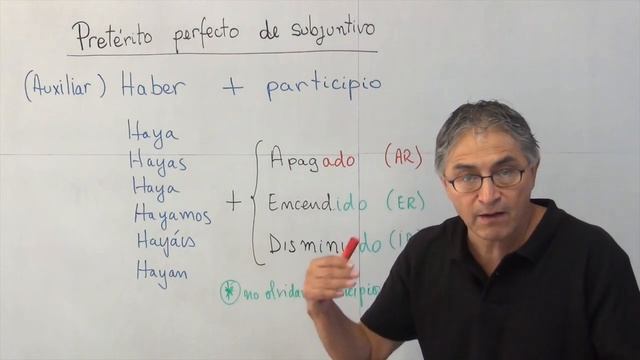 Pretérito perfecto de subjuntivo
(Auxiliar) Haber + participio
Haya
Hayas
Haya
Hayamos
Hayáis
Hayan
+
Apagado (AR)
Encendido (ER)
Disminuido
* no olvidar